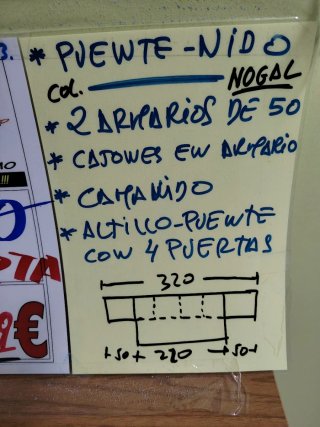 * PUENTE-NIDO
COL. NOGAL
* 2 ARMARIOS DE 50
* CAJONES EN ARMARIO
* CAMANIDO
* ALTILLO-PUENTE
CON 4 PUERTAS
320
50 220 50
€